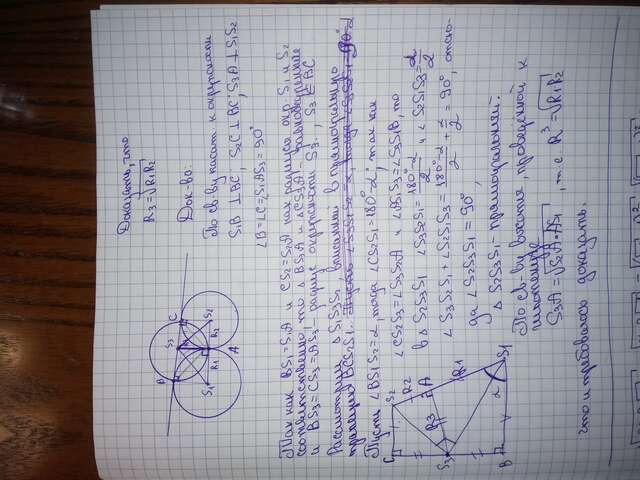 Доказать, что
R3 = √R1R2
Док-во:
По св-ву касат. к окружности
S1B ⊥ BC, S2C ⊥ BC, S3A ⊥ S1S2
∠B = ∠C = ∠S1AS3 = 90°
B
C
S3
S2
R1
R2
S1
A
Так как BS1 = S1A и CS2 = S2A как радиусы окр S1 и S2
соответственно, то △ BS3A и △ CS3A - равнобедренные
и BS3 = CS3 = AS3 радиус окружности S3, S3 ∈ BC
Рассмотрим △ S1S3S2 вписанный в прямоугольную
трапецию BCS2S1.
Пусть ∠BS1S2 = α, тогда ∠CS2S1 = 180° - α, так как
∠CS2S3 = ∠S3S2A и ∠BS1S3 = ∠S3S1B, то
в △ S2S3S1 ∠S3S2S1 = 180° - α / 2, и ∠S2S1S3 = α / 2
∠S3S2S1 + ∠S2S1S3 = 180° - α / 2 + α / 2 = 90°, отсю-
да ∠S2S3S1 = 90°,
△ S2S3S1 - прямоугольный.
По св-ву высоты, проведенной к
гипотенузе
S3A = √S2A · AS1, т.е. R3 = √R1R2
что и требовалось доказать.
C
S2
R2
A
R3
S3
R1
B
α
S1